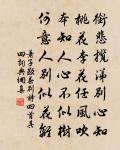 銜悲攬涕別心知
桃花李花任風吹
本知人心不似樹
何意人別似花離
蕭子顯春別詩四首其
四詞典網集